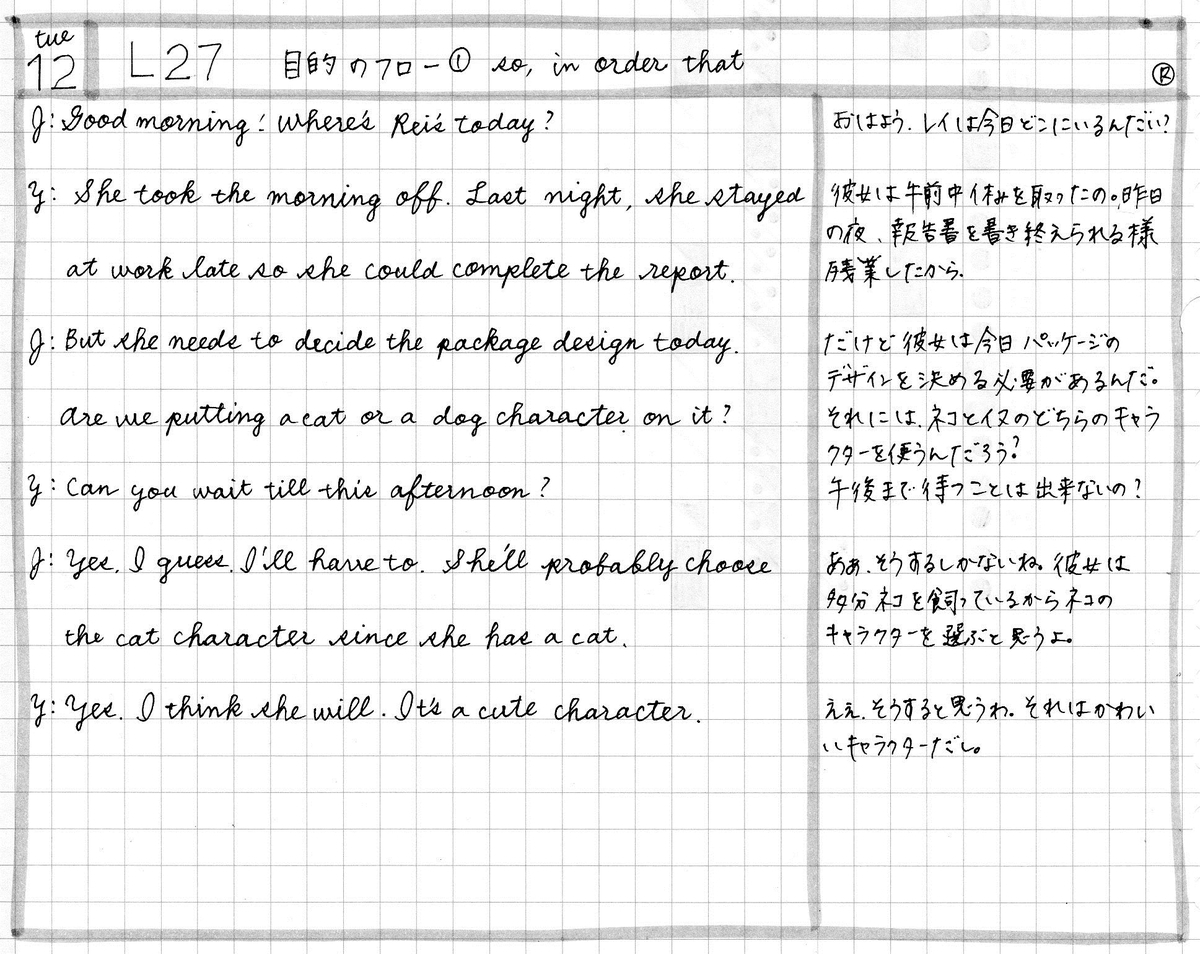 tue
12
L27 目的のフロー① so, in order that
Ⓡ
J: Good morning! Where's Rei's today?
おはよう、レイは今日どこにいるんだい?
Y: She took the morning off. Last night, she stayed
at work late so she could complete the report.
彼女は午前中休みを取ったの。昨日
の夜、報告書を書き終えられる様
残業したから。
J: But she needs to decide the package design today.
Are we putting a cat or a dog character on it?
だけど彼女は今日パッケージの
デザインを決める必要があるんだ。
それには、ネコとイヌのどちらのキャラ
クターを使うんだろう?
Y: Can you wait till this afternoon?
午後まで待つことは出来ないの?
J: Yes, I guess I'll have to. She'll probably choose
the cat character since she has a cat.
ああ、そうするしかないね。彼女は
多分ネコを飼っているからネコの
キャラクターを選ぶと思うよ。
Y: Yes. I think she will. It's a cute character.
ええ、そうすると思うわ。それはかわい
いキャラクターだし。